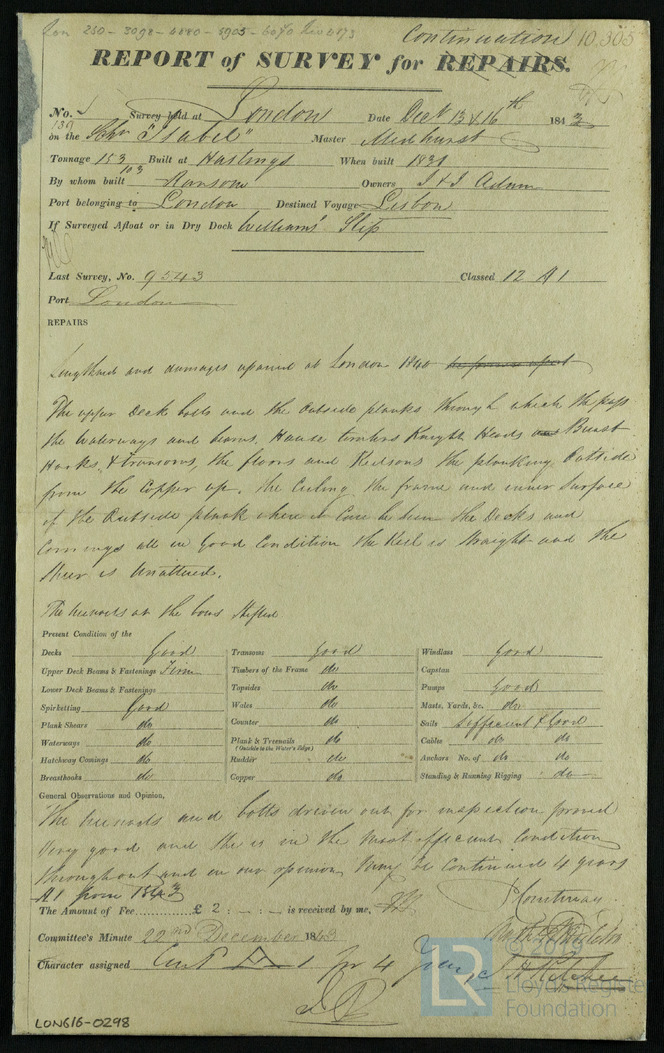 Continuation 10,305
REPORT of SURVEY for REPAIRS.
No. Survey held at London Date Decr 13 & 16th 1843
on the Schr "Isabel" Master Medhurst
Tonnage 153 Built at Hastings When built 1831
103
By whom built Ransom Owners J & J Adam
Port belonging to London Destined Voyage Lisbon
If Surveyed Afloat or in Dry Dock Williams' Slip
Last Survey, No. 9543 Classed 12 A1
Port London
REPAIRS
Lengthened and damages repaired at London 1840
The upper Deck bolts and the outside planks through which the pass
the waterways and beams, Hause timbers Knight Heads Breast
Hooks, & transoms, the floors and Keelsons the planking Outside
from the Copper up. the Ceiling the frame and inner surface
of the Outside plank where it Can be seen the Decks and
Comings all in Good Condition the Keel is Straight and the
Sheer is Unaltered.
The treenails at the bows Shifted
Present Condition of the
Decks Good Transoms good Windlass good
Upper Deck Beams & Fastenings Firm Timbers of the Frame do Capstan
Lower Deck Beams & Fastenings Topsides do Pumps Good
Spirketting Good Wales do Masts, Yards, &c. do
Plank Shears do Counter do Sails Sufficient & Good
Waterways do Plank & Treenails do Cables do do
(Outside to the Water's Edge)
Hatchway Comings do Rudder do Anchors No. of do do
Breasthooks do Copper do Standing & Running Rigging do
General Observations and Opinion,
The treenails and bolts driven out for inspection proved
Very good and She is in the most efficient Condition
throughout and in our opinion May be Continued 4 years
A1 from 1843
The Amount of Fee £ 2 : - : - is received by me,
Committee's Minute 22nd December 1843
Character assigned Cont A 1 for 4 Years
© 2019
LR Lloyd's Register
Foundation
LON616-0298